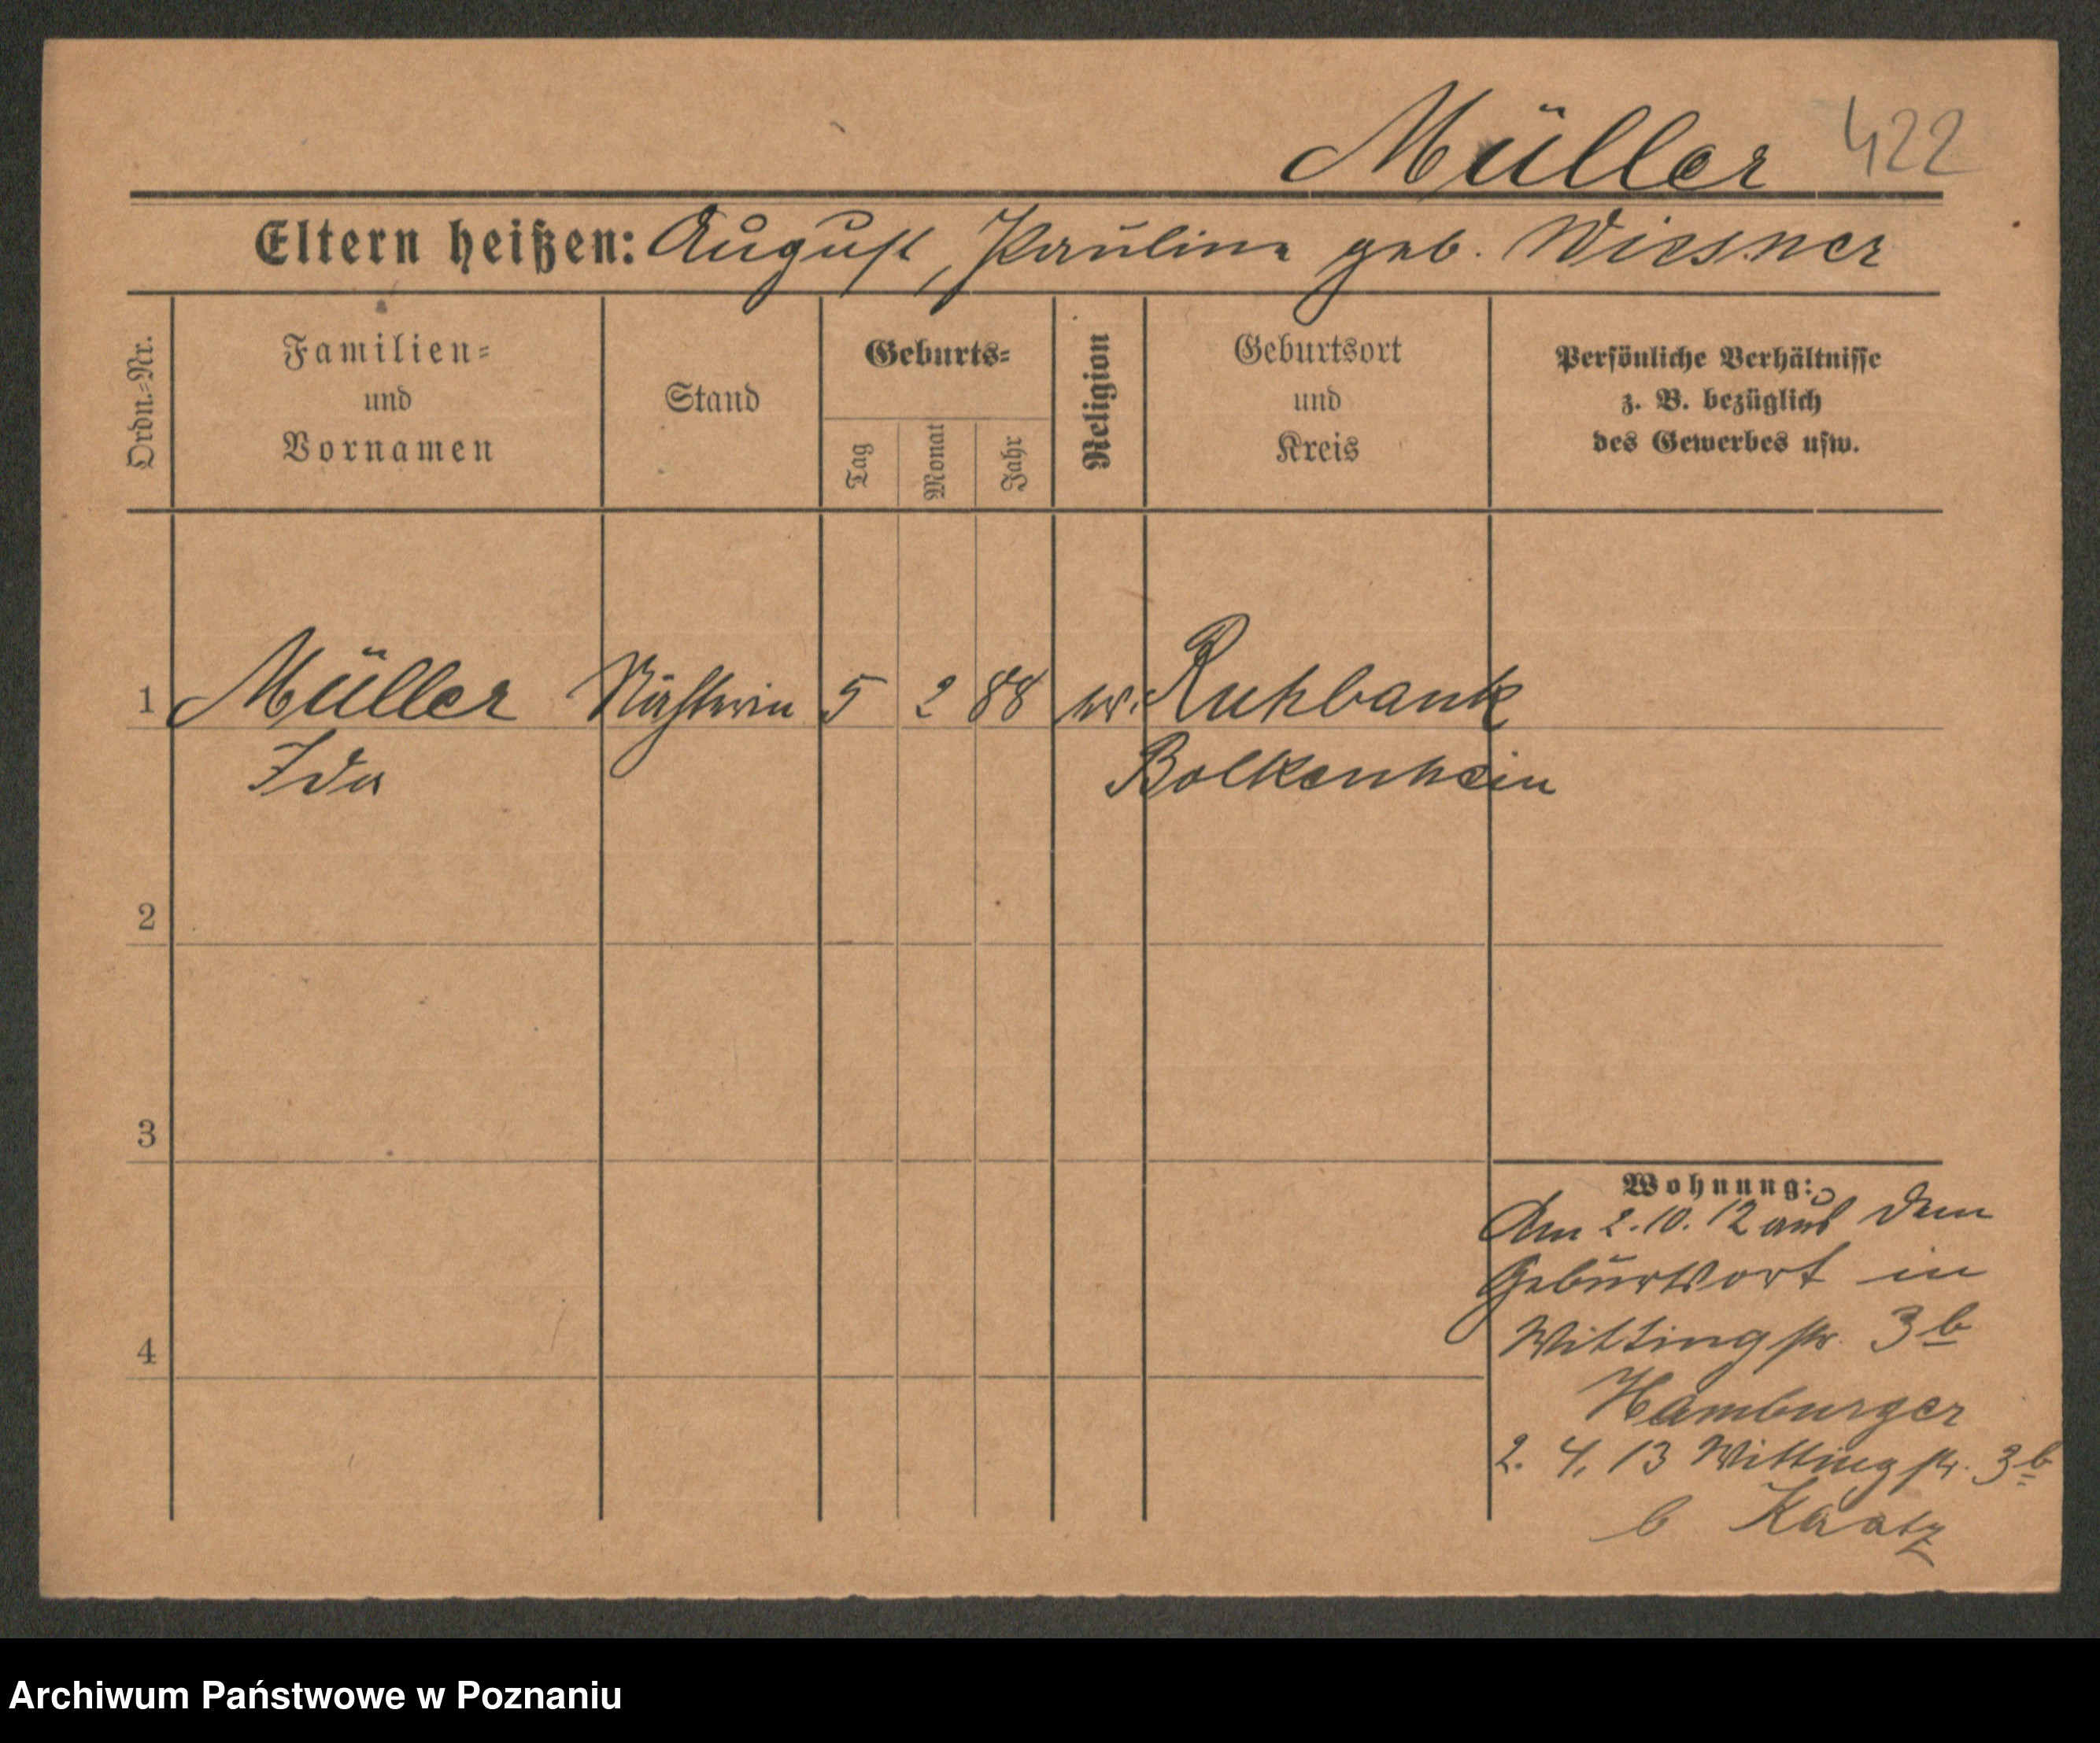 Müller 422
Eltern heißen: August, Pauline geb. Wiesner
Ordn.-Nr.
Familien-
und
Vornamen
Stand
Geburts-
Tag
Monat
Jahr
Religion
Geburtsort
und
Kreis
Persönliche Verhältnisse
z. B. bezüglich
des Gewerbes usw.
1 Müller 5 2 88 ev. Ruhbank
Ida Bolkenhain
2
3
4
Wohnung:
Am 2.10.12 aus dem
Geburtsort in
Wittingstr. 3b
Hamburger
2. 4. 13 Wittingstr. 3b
b Kaatz
Archiwum Państwowe w Poznaniu